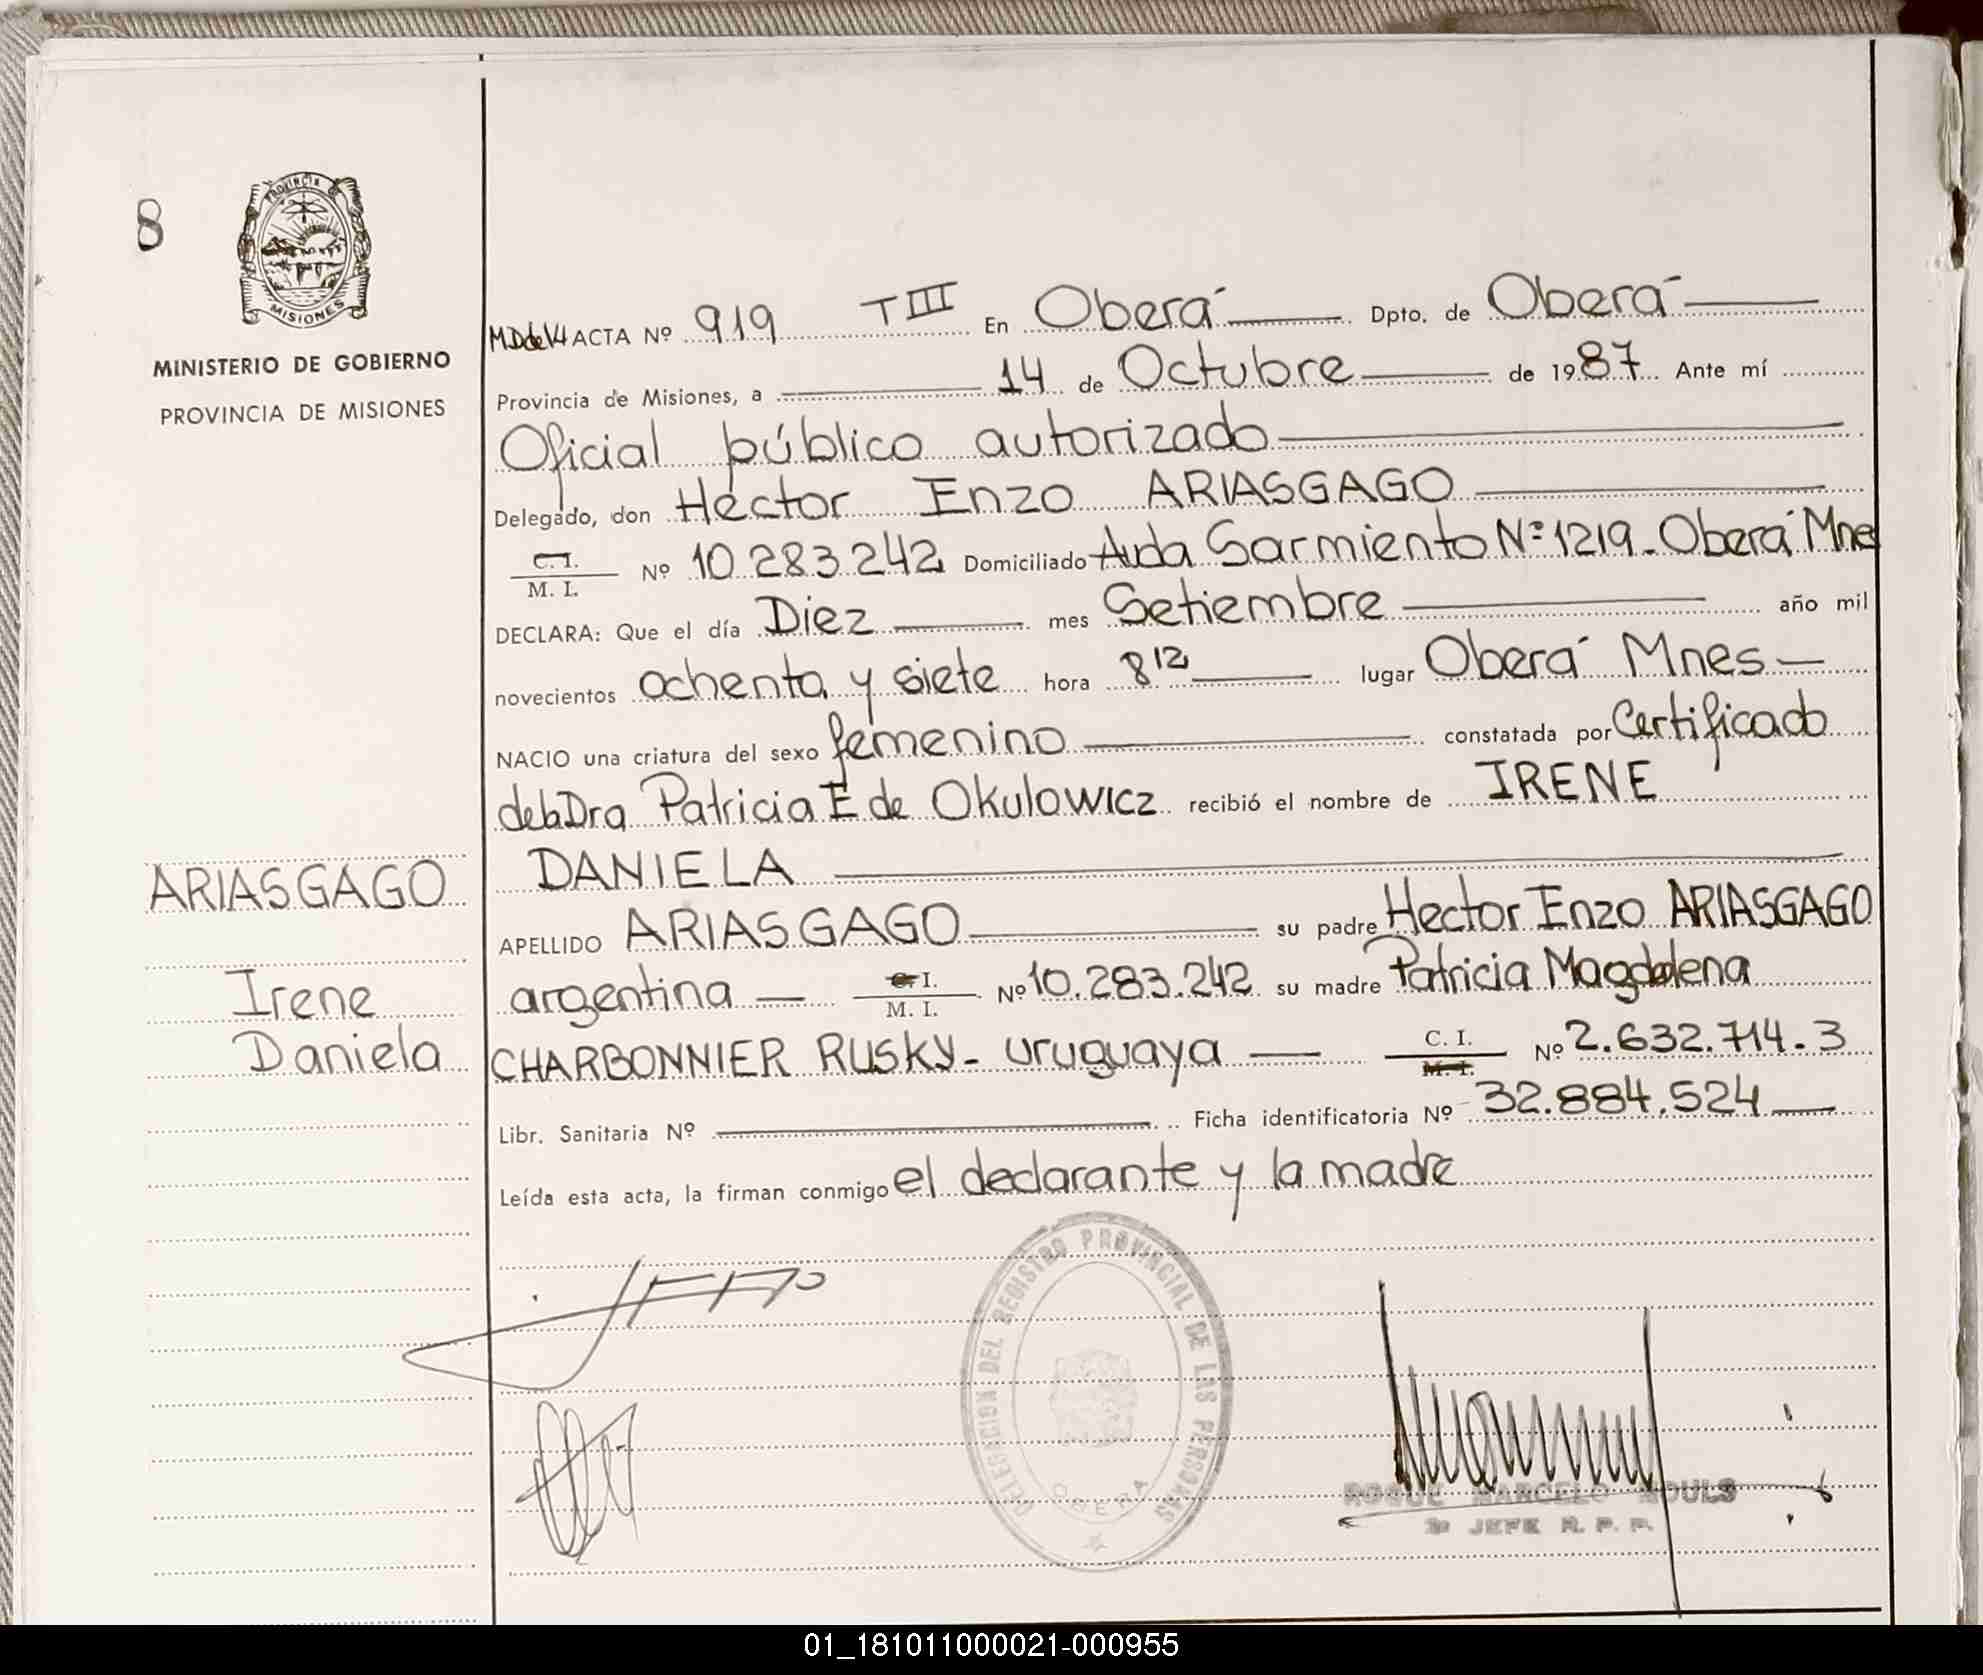 8
PROVINCIA
MISIONES
MINISTERIO DE GOBIERNO
PROVINCIA DE MISIONES
ARIASGAGO
Irene
Daniela
ACTA Nº 919 TIII En Oberá Dpto. de Oberá
Provincia de Misiones, a 14 de Octubre de 1987 Ante mí
Oficial público autorizado
Delegado, don Héctor Enzo ARIASGAGO
C. I.
M. I. Nº 10.283.242 Domiciliado Avda Sarmiento Nº 1219 - Oberá Mnes
DECLARA: Que el día Diez mes Setiembre año mil
novecientos ochenta y siete hora 8 12 lugar Oberá Mnes
NACIO una criatura del sexo femenino constatada por Certificado
de la Dra Patricia E de Okulowicz recibió el nombre de IRENE
DANIELA
APELLIDO ARIASGAGO su padre Hector Enzo ARIASGAGO
argentina C. I.
M. I. Nº 10.283.242 su madre Patricia Magdalena
CHARBONNIER RUSKY - uruguaya C. I.
M. I. Nº 2.632.714-3
Libr. Sanitaria Nº Ficha identificatoria Nº 32.884.524
Leída esta acta, la firman conmigo el declarante y la madre
DELEGACION DEL REGISTRO PROVINCIAL DE LAS PERSONAS
OBERA
ROQUE MARCELO
JEFE R. P. P.
01_181011000021-000955